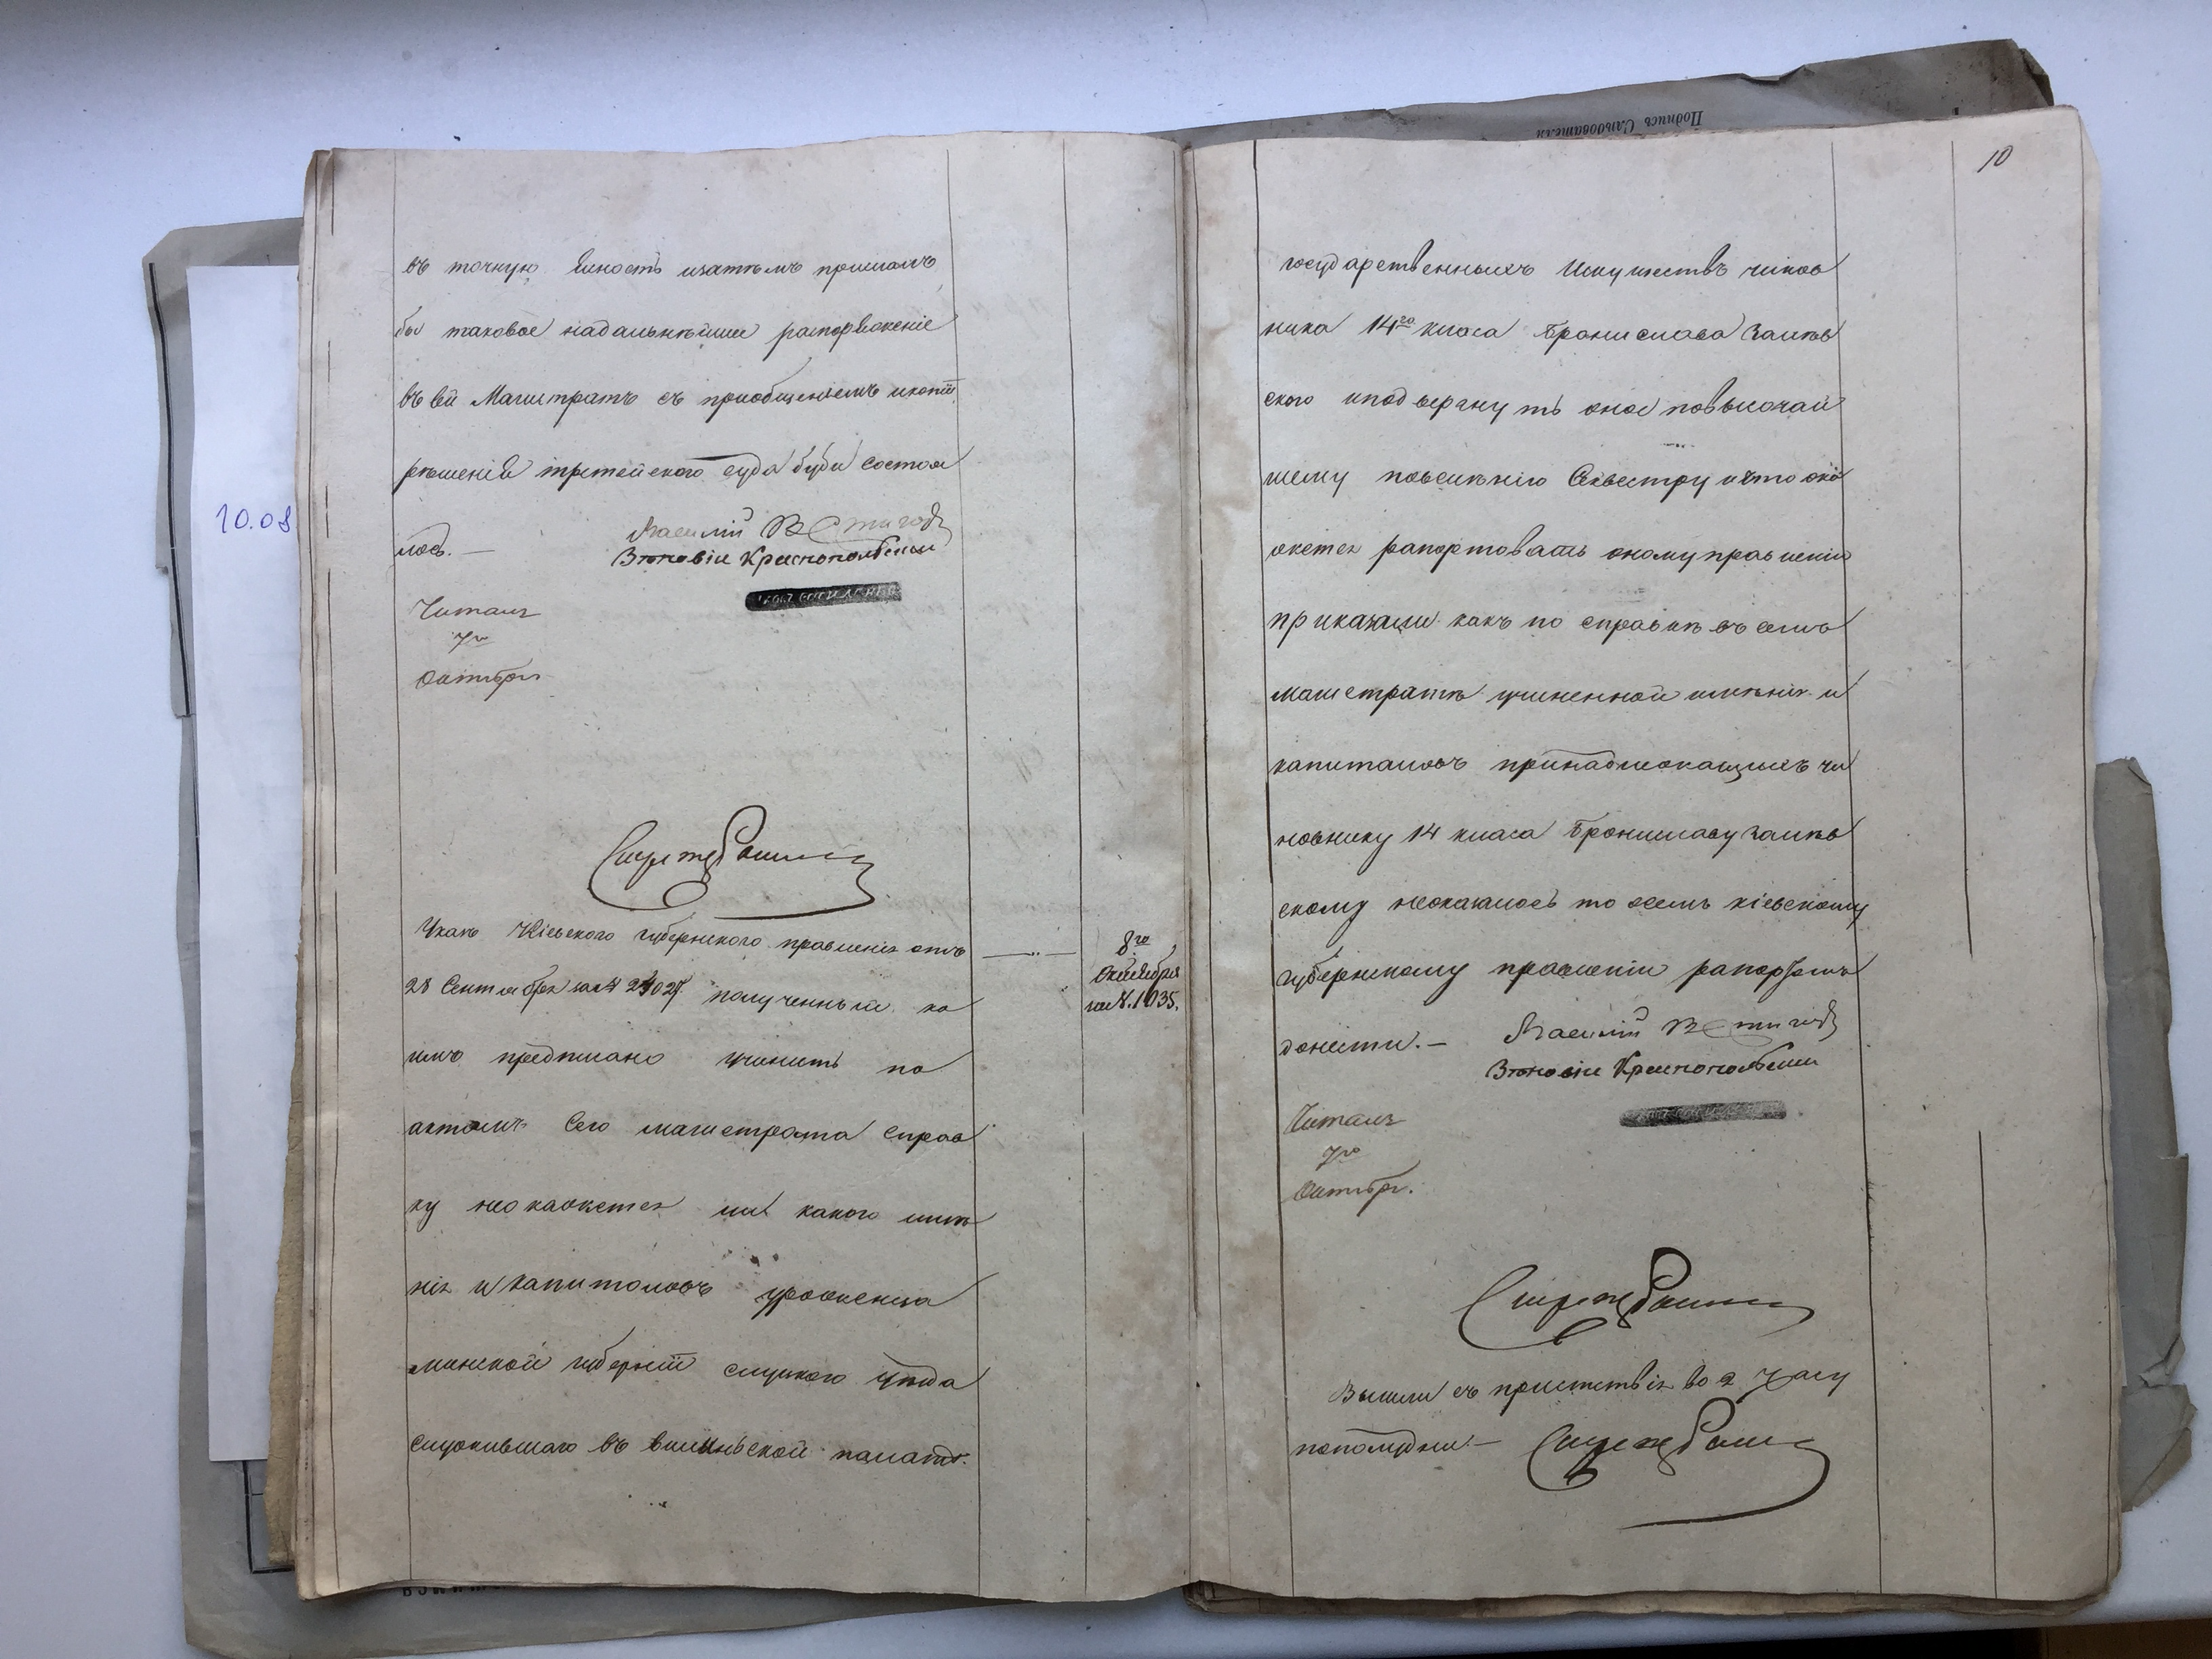 въ точную ясность изатемъ прислалъ
бы таковое надальнейшее разпорєженіе
въ сей Магистратъ съ приобщеніемъ икопіи
решенія третейского суда буди состоя
лось. —
Василій
Зѣновій Краснопольскій
Читалъ
7го
Октября
Указъ Кіевского губернского правленія отъ
28 Сентября за №
полученный ко
8го
Октября
за №. 1035.
имъ предписано учинить по
актамъ сего магистрата справ
ку неокажется ли какого имѣ
нія и капиталовъ уроженца
минской губерніи слуцкого уѣзда
служившаго въ виленьской палатѣ
10
государственныхъ имуществъ чинов
ника 14го класа Бронислава Залѣв
ского иподвергнуть оное повысочай
шему повелѣнію Секвестру ичто ока
жется рапортовать оному правленію
приказали какъ по справкѣ въ семъ
магистратѣ учиненной имѣнія и
капиталовъ принадлежащихъ чи
новнику 14 класа Брониславу Залѣв
скому неоказалось то осемъ кіевскому
губернскому правленію рапортомъ
донести. —
Василій
Зѣновій Краснопольскій
Читалъ
7го
Октября.
Вышли съ пристствія во 2 часу
пополудни. —
Подпись Слѣдователя
10.08